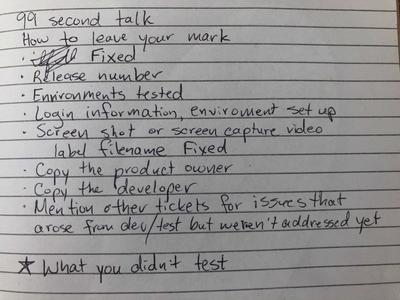 99 second talk
How to leave your mark
· Fixed
· Release number
· Environments tested
· Login information, enviroment set up
· Screen shot or screen capture video
label filename Fixed
· Copy the product owner
· Copy the developer
· Mention other tickets for issues that
arose from dev/test but weren't addressed yet
★ What you didn't test